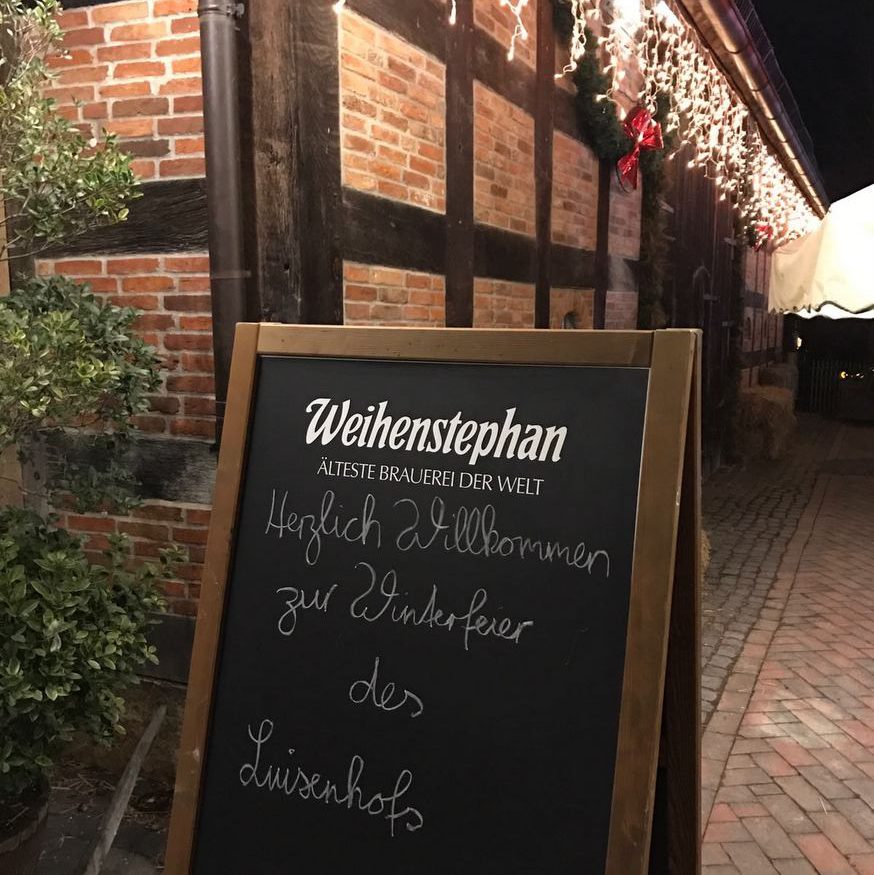 Weihenstephan
ÄLTESTE BRAUEREI DER WELT
Herzlich Willkommen
zur Winterfeier
des
Luisenhofs